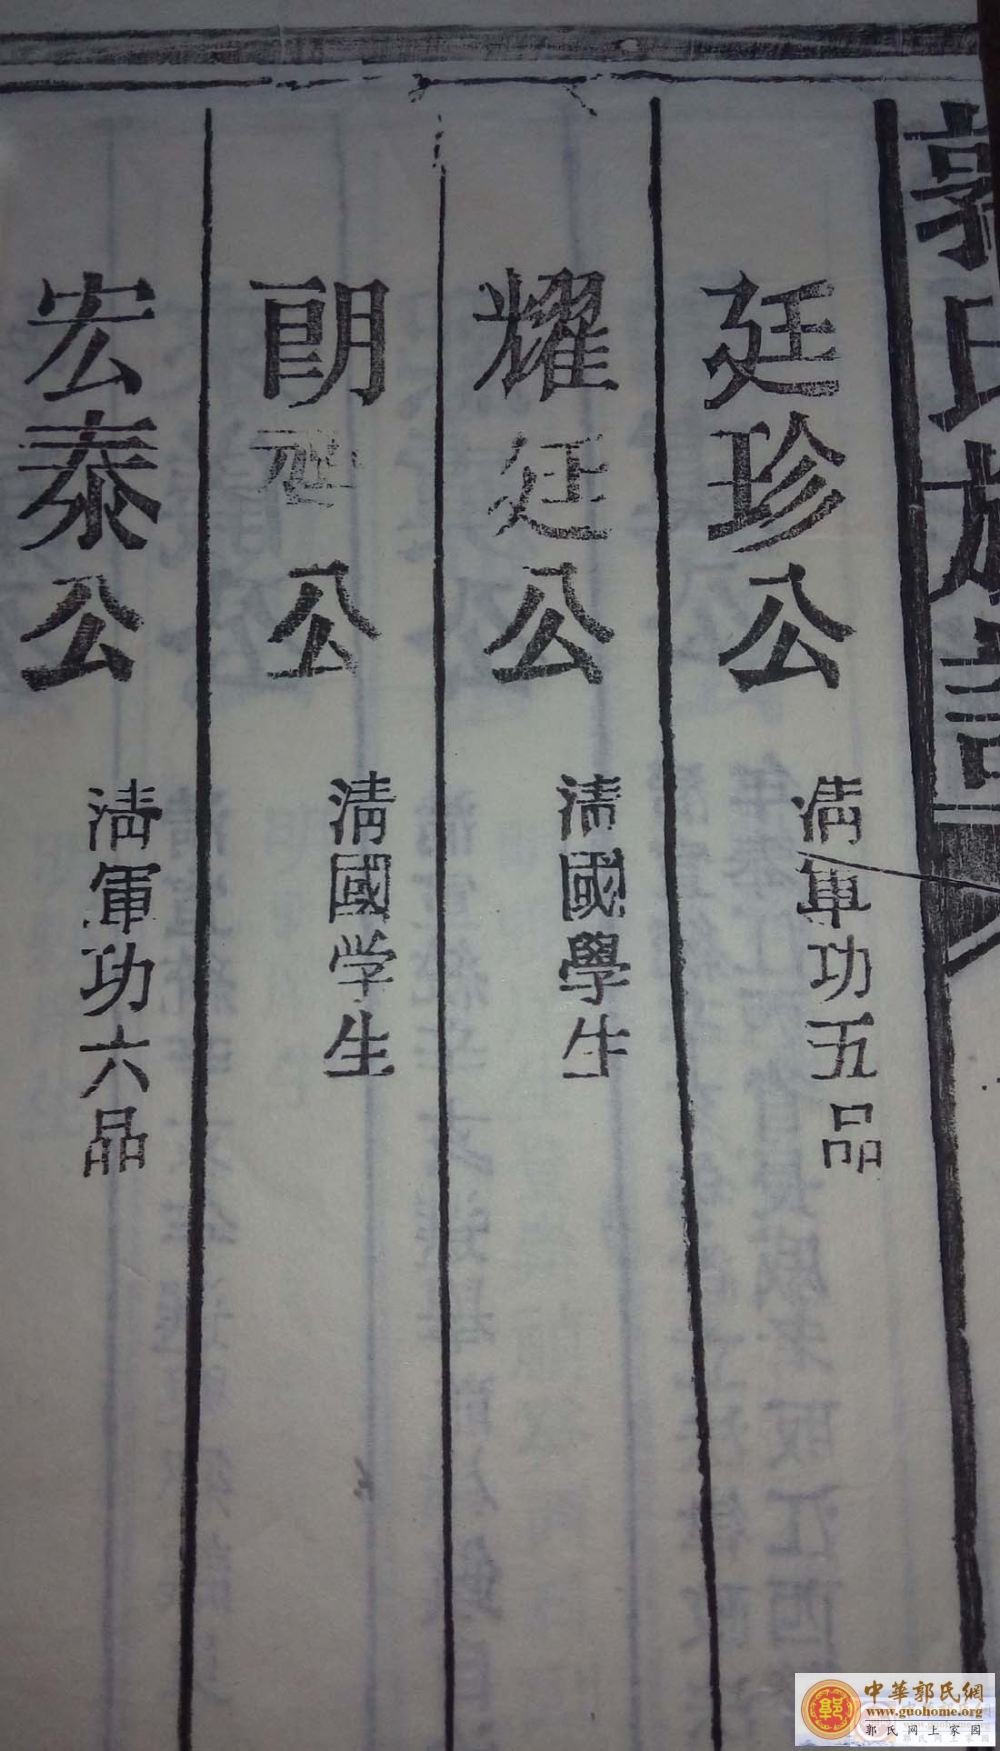 郭氏族譜
廷珍公 清軍功五品
耀廷公 清國學生
朗 公 清國学生
宏泰公 清軍功六品
中華郭氏網
www.guohome.org
郭氏网上家园